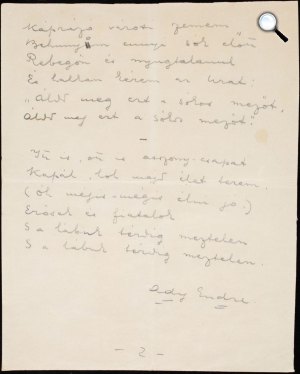 Káprázó városi szemem
Behunyom ennyi sok előtt
Rebegőn és nyugtalanul
És lassan kérem az Urat:
"Áldd meg ezt a sokos mezőt,
Áldd meg ezt a sokos mezőt."
–
Itt is, ott is asszony-csapat
Kapál, hol majd élet terem.
(Óh mégis-mégis élni jó.)
Erősek és fiatalok
S a lábuk térdig meztelen
S a lábuk térdig meztelen.
Ady Endre.
– 2 –